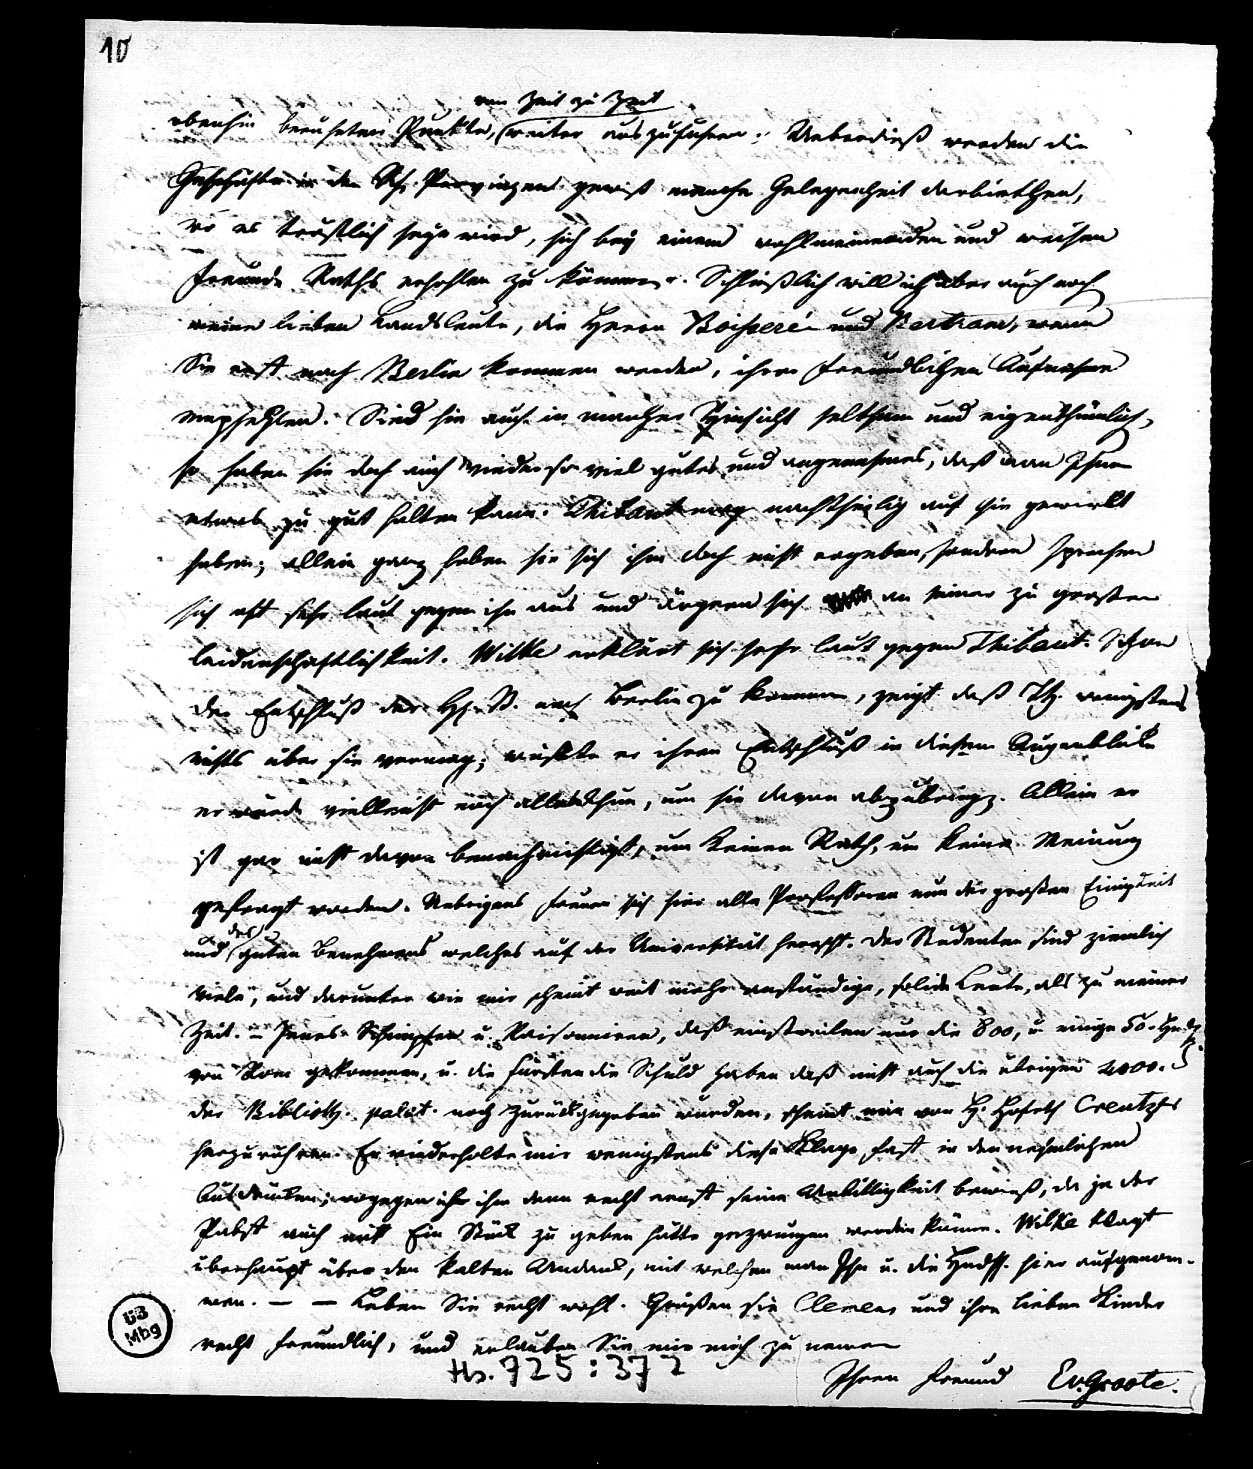 10
von Zeit zu Zeit
obenhin berührten Punkte, weiter auszuführen. Ueberdieß werden die
Geschäfte in den Rh. Provinzen gewiß manche Gelegenheit darbiethen,
wo es tröstlich seyn wird, sich bey einem wohlmeinenden und weisen
Freunde Raths erhohlen zu können. Schließlich will ich aber auch noch
meine lieben Landsleute, die Herrn Boisserée und Bertram, wenn
Sie erst nach Berlin kommen werden, ihrer freundlichen Aufnahme
empfehlen. Sind sie auch in mancher Hinsicht seltsam und eigenthümlich,
so haben sie doch auch wieder so viel gutes und angenehmes, daß man Ihnen
etwas zu gut halten kann. Thibaut mag nachtheilig auf sie gewirkt
haben; allein ganz haben sie sich ihm doch nicht ergeben, sondern sprechen
sich oft sehr laut gegen ihn aus und ärgern sich an seiner zu großen
Leidenschaftlichkeit. Wilke erklärt sich sehr laut gegen Thibaut. Schon
der Entschluß der H. B. nach Berlin zu kommen, zeigt daß Th. wenigstens
nichts über sie vermag; wüßte er ihren Entschluß in diesem Augenblicke
er würde vielleicht noch alles thun, um sie davon abzubringen. Allein er
ist gar nicht davon benachrichtigt, um keinen Rath, um keine Meinung
gefragt worden. Uebrigens freuen sich hier alle Professoren nun der großen Einigkeit
und des guten Benehmens welches auf der Universität herrscht. Der Studenten sind ziemlich
viele, und darunter wie mir scheint weit mehr anständige, solide Leute, als zu meiner
Zeit. – Jenes Schimpfen u. Raisonniren, daß einstweilen nur die 800, u. einige 50. Hndss.
von Rom gekommen, u. die Fürsten die Schuld haben daß nicht auch die übrigen 2000.
der Biblioth. palat. noch zurückgegeben wurden, scheint mir von H. Hofrth Creutzer
herzurühren. Er wiederholte mir wenigstens diese Klage fast in den nehmlichen
Ausdrücken; wogegen ich ihm denn recht ernst seine Unbilligkeit bewieß, da ja der
Pabst auch nicht Ein Stück zu geben hätte gezwungen werden können. Wilke klagt
überhaupt über den kalten Undank, mit welchem man Ihn u. die Hndss. hier aufgenom-
men. – – Leben Sie recht wohl. Grüßen sie Clemens und ihre lieben Kinder
recht freundlich, und erlauben Sie mir mich zu nennen
Ihren Freund Ev.Groote.
UB
Mbg
Hs. 725:372